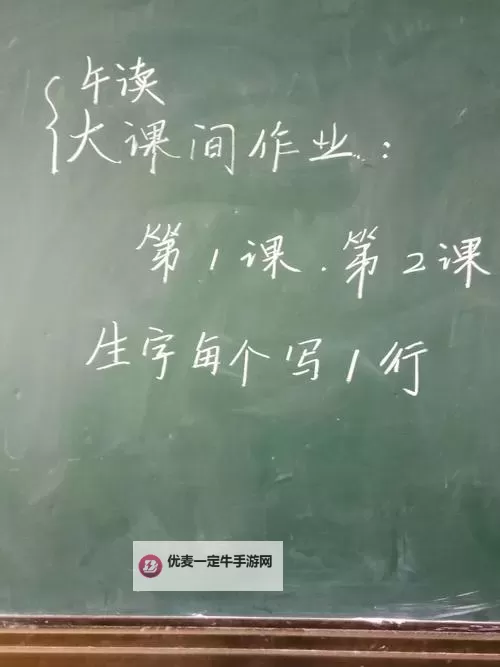 午读
大课间作业：
第1课.第2课
生字每个写1行
优麦一定牛手游网